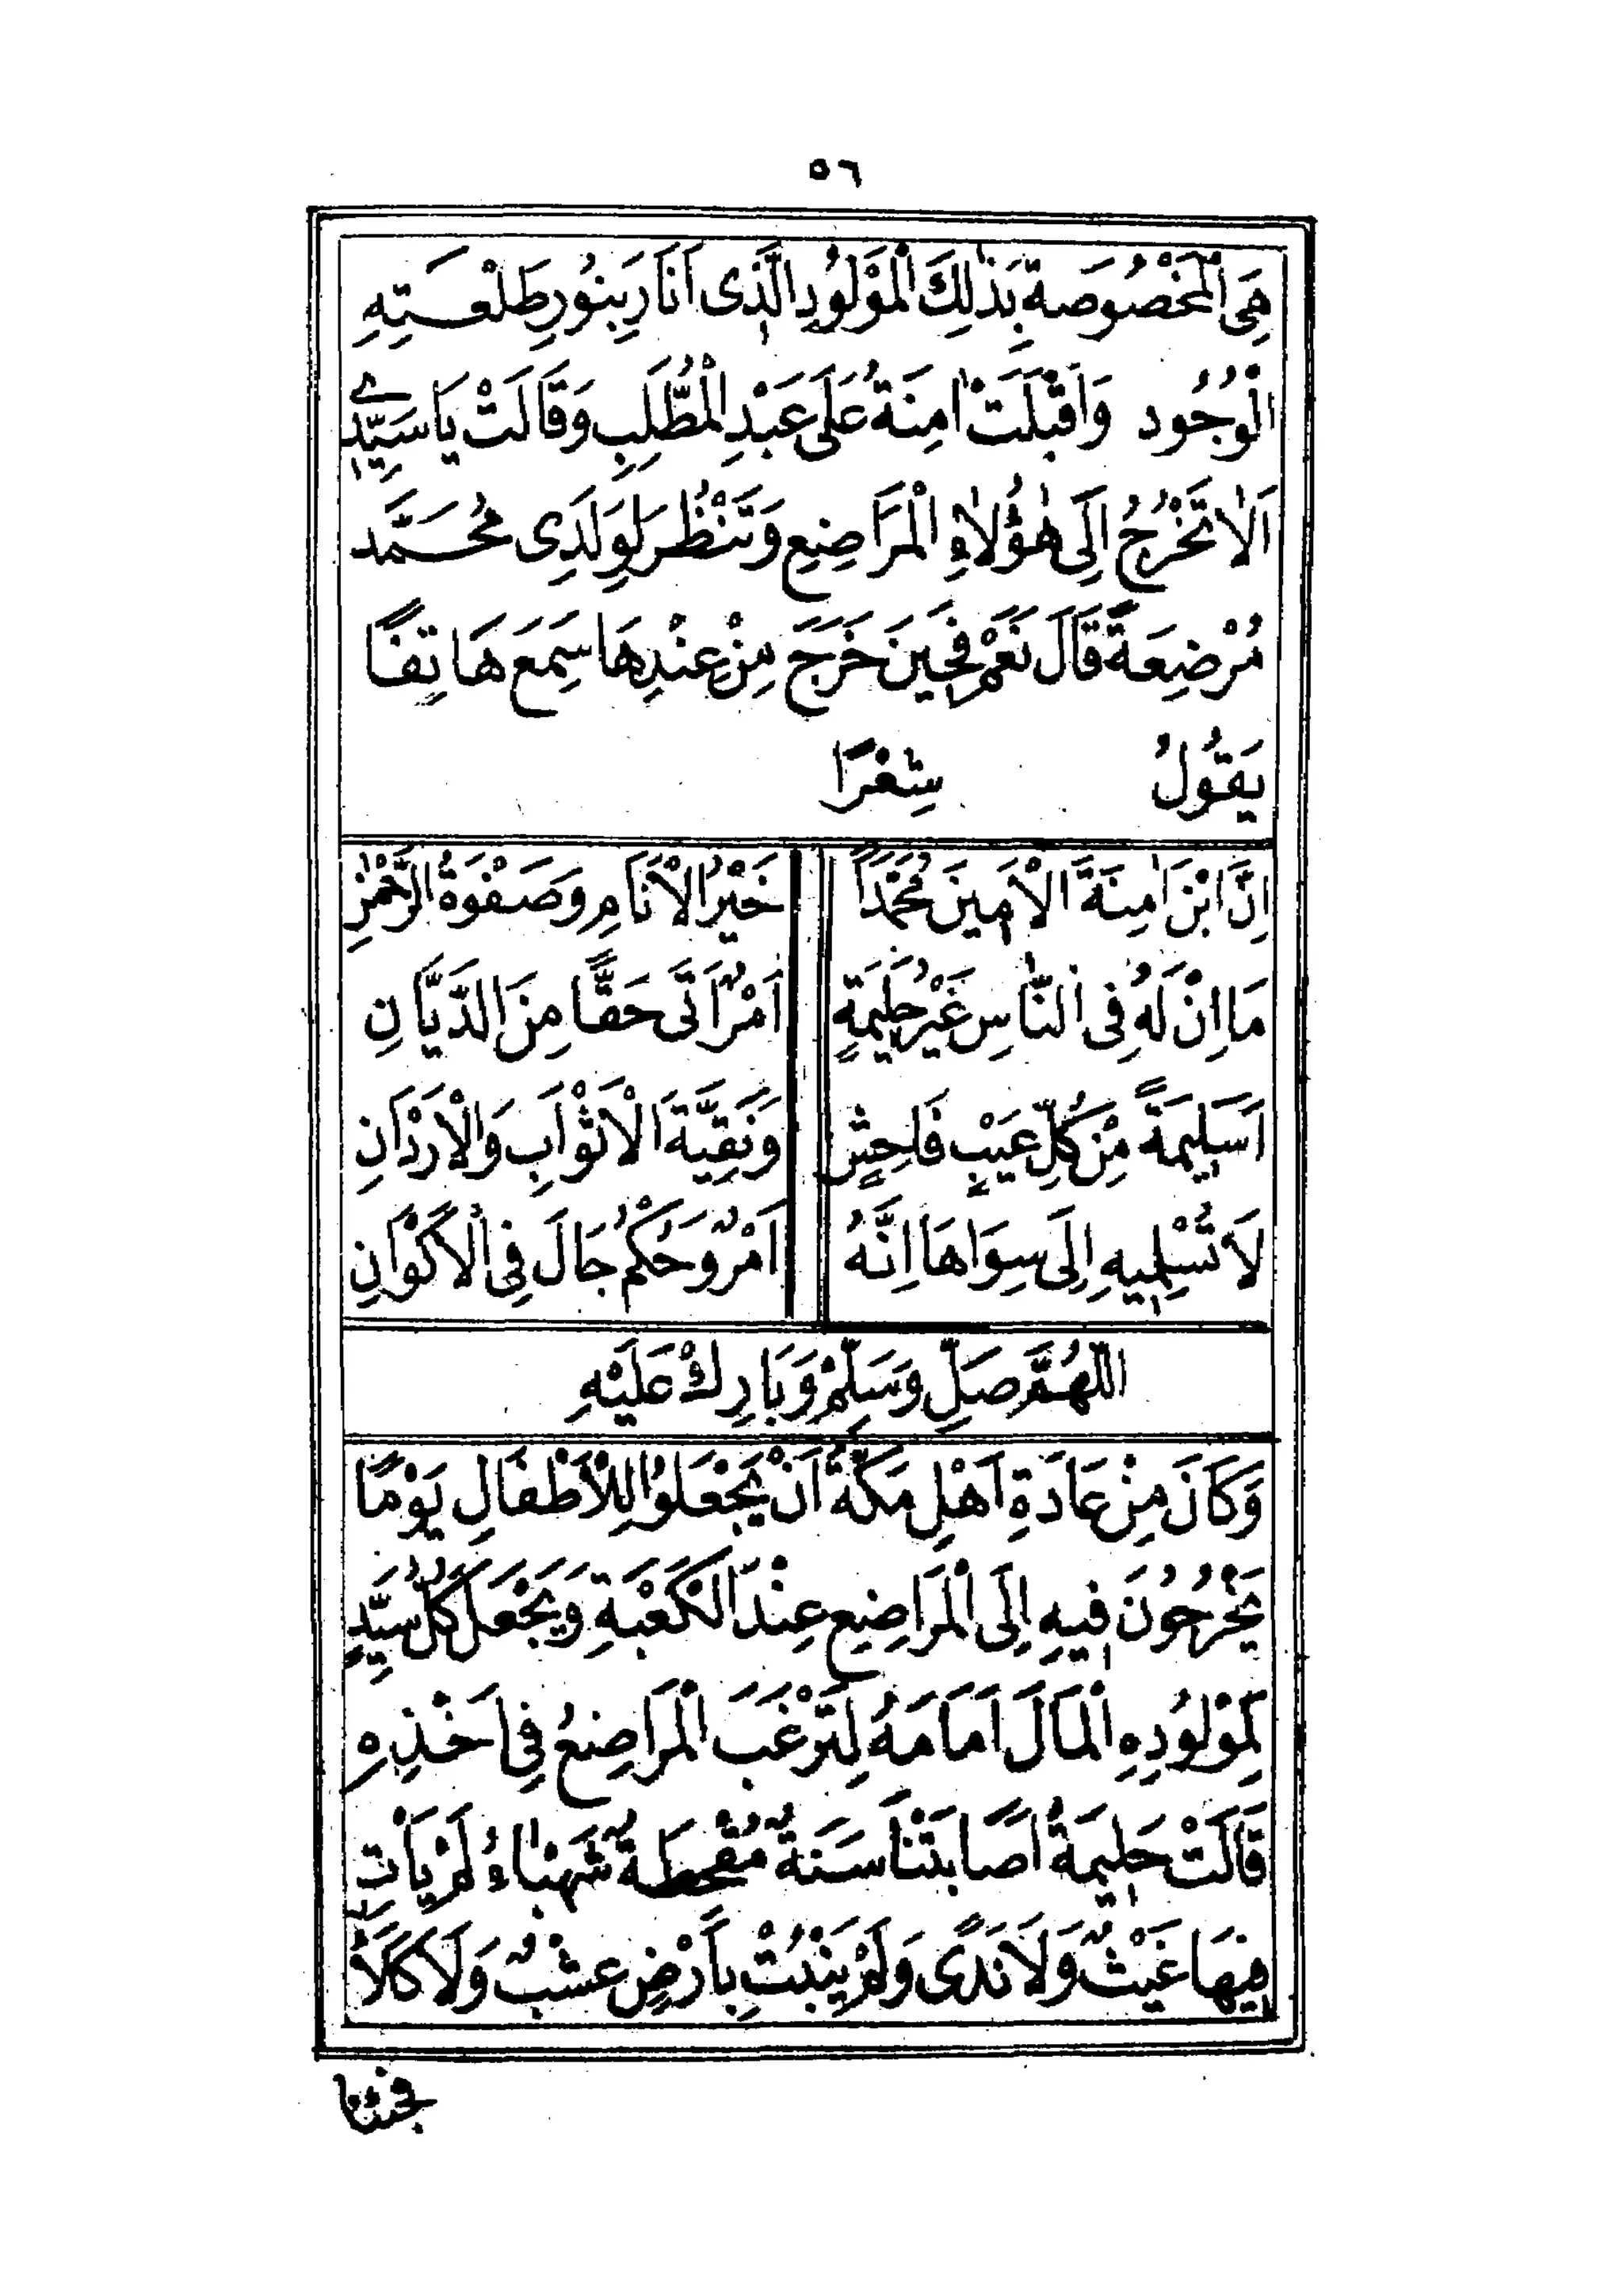 ٥٦
هِيَ الْمَخْصُوصَةُ بِذٰلِكَ الْمَوْلُودِ الَّذِى اَنَارَ بِنُورِ طَلْعَتِهِ
الْوُجُود وَاَقْبَلَتْ اٰمِنَةُ عَلَى عَبْدِ الْمُطَّلِبِ وَقَالَتْ يَا سَيِّدِى
اَلَا تَخْرُجُ اِلَى هٰؤُلَاءِ الْمَرَاضِعِ وَتَنْظُرَ لِوَلَدِى مُحَمَّد
مُرْضِعَةً قَالَ نَعَمْ فَحِينَ خَرَجَ مِنْ عِنْدِهَا سَمِعَ هَاتِفًا
يَقُولُ شِعْرًا
اِنَّ ابْنَ اٰمِنَةَ الْاَمِينَ مُحَمَّدًا خَيْرُ الْاَنَامِ وَصَفْوَةُ الرَّحْمٰنِ
مَا اِنْ لَهُ فِى النَّاسِ غَيْرُ حَلِيمَةٍ اَمْرٌ اَتَى حَقًّا مِنَ الدَّيَّانِ
اَسَلِيمَةً مِنْ كُلِّ عَيْبٍ فَاحِشٍ وَنَقِيَّةَ الْاَثْوَابِ وَالْاَرْدَانِ
لَا تُسْلِمِيهِ اِلَى سِوَاهَا اِنَّهُ اَمْرٌ وَحُكْمٌ جَالَ فِى الْاَكْوَانِ
اَللّٰهُمَّ صَلِّ وَسَلِّمْ وَبَارِكْ عَلَيْهِ
وَكَانَ مِنْ عَادَةِ اَهْلِ مَكَّةَ اَنْ يَجْعَلُوا لِلْاَطْفَالِ يَوْمًا
يَخْرُجُونَ فِيهِ اِلَى الْمَرَاضِعِ عِنْدَ الْكَعْبَةِ وَيَجْعَلَ كُلُّ سَيِّدٍ
لِمَوْلُودِهِ الْمَالَ اَمَامَهُ لِتَرْغَبَ الْمَرَاضِعُ فِى اَخْذِهِ
قَالَتْ حَلِيمَةُ اَصَابَتْنَا سَنَةٌ مُقْحِطَةٌ شَهْبَاءُ لَمْ يَأْتِ
فِيهَا غَيْثٌ وَلَا نَدًى وَلَمْ يَنْبُتْ بِاَرْضٍ عُشْبٌ وَلَا كَلَاٌ
فجئنا